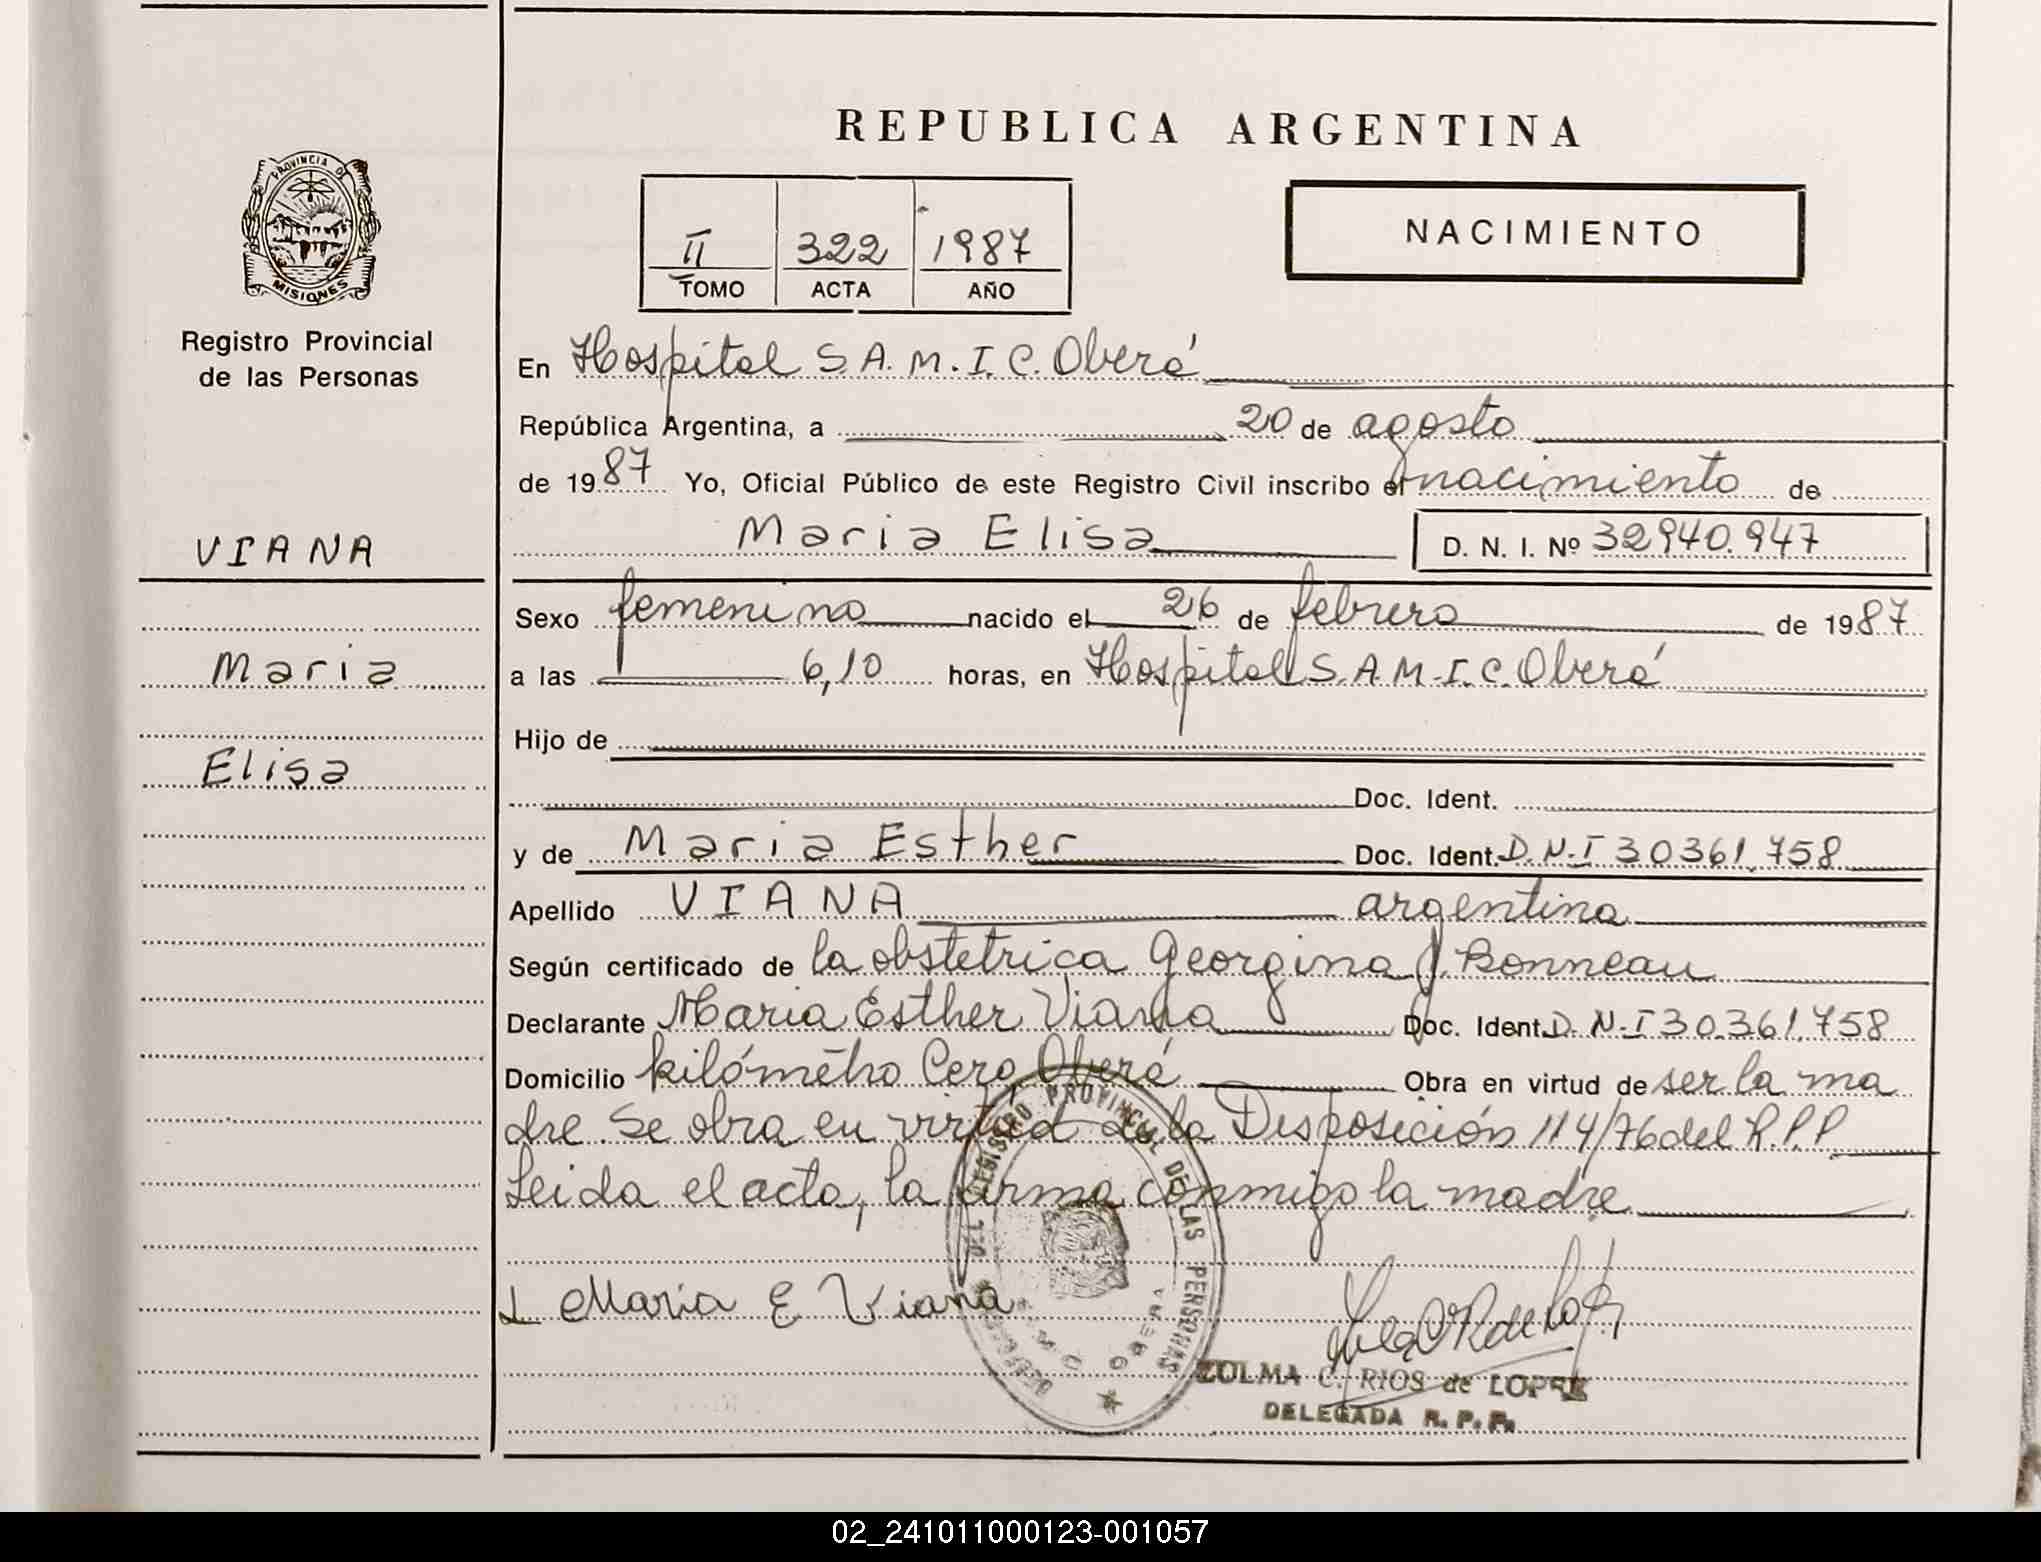 REPUBLICA ARGENTINA
PROVINCIA DE
MISIONES
Registro Provincial
de las Personas
II 322 1987
TOMO ACTA AÑO
NACIMIENTO
En Hospital S.A.M.I.C. Oberá
República Argentina, a 20 de agosto
de 1987 Yo, Oficial Público de este Registro Civil inscribo el nacimiento de
VIANA
Maria Elisa D. N. I. Nº 32940.947
Sexo femenino nacido el 26 de febrero de 1987
Maria
a las 6,10 horas, en Hospital S.A.M.I.C. Oberá
Hijo de
Elisa
Doc. Ident.
y de Maria Esther Doc. Ident. D.N.I 30361.758
Apellido VIANA argentina
Según certificado de la obstetrica Georgina J. Bonneau
Declarante Maria Esther Viana Doc. Ident. D.N.I 30.361.758
Domicilio kilómetro Cero Oberá Obra en virtud de ser la ma
dre. Se obra en virtud de la Disposición 114/76 del R.P.P
Leida el acta, la firma conmigo la madre
REGISTRO PROVINCIAL DE LAS PERSONAS
OBERA
Maria E Viana
ZULMA C. RIOS de LOPEZ
DELEGADA R. P. P.
02_241011000123-001057